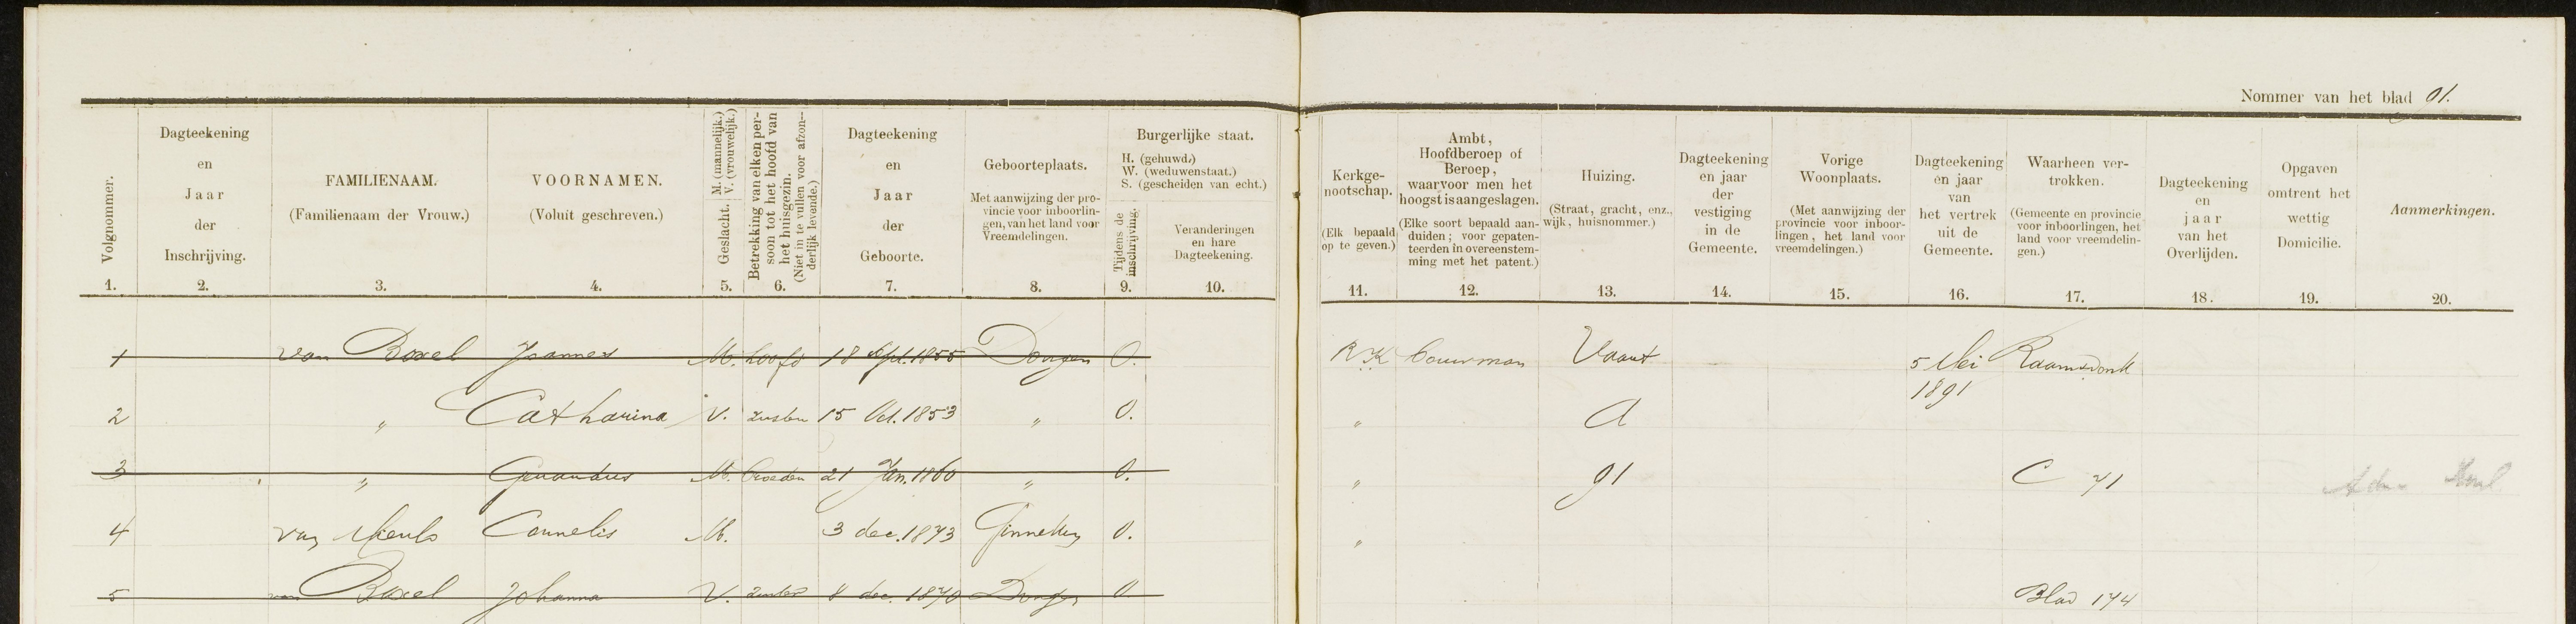 Nommer van het blad 91.
Volgnommer.
Dagteekening
en
Jaar
der
Inschrijving.
FAMILIENAAM.
(Familienaam der Vrouw.)
VOORNAMEN.
(Voluit geschreven.)
Geslacht. M. (mannelijk.)
V. (vrouwelijk.)
Betrekking van elken per-
soon tot het hoofd van
het huisgezin.
(Niet in te vullen voor afzon-
derlijk levende.)
Dagteekening
en
Jaar
der
Geboorte.
Geboorteplaats.
Met aanwijzing der pro-
vincie voor inboorlin-
gen, van het land voor
Vreemdelingen.
Burgerlijke staat.
H. (gehuwd.)
W. (weduwenstaat.)
S. (gescheiden van echt.)
Tijdens de
inschrijving.
Veranderingen
en hare
Dagteekening.
Kerkge-
nootschap.
(Elk bepaald
op te geven.)
Ambt,
Hoofdberoep of
Beroep,
waarvoor men het
hoogst is aangeslagen.
(Elke soort bepaald aan-
duiden; voor gepaten-
teerden in overeenstem-
ming met het patent.)
Huizing.
(Straat, gracht, enz.,
wijk, huisnommer.)
Dagteekening
en jaar
der
vestiging
in de
Gemeente.
Vorige
Woonplaats.
(Met aanwijzing der
provincie voor inboor-
lingen, het land voor
vreemdelingen.)
Dagteekening
en jaar
van
het vertrek
uit de
Gemeente.
Waarheen ver-
trokken.
(Gemeente en provincie
voor inboorlingen, het
land voor vreemdelin-
gen.)
Dagteekening
en
jaar
van het
Overlijden.
Opgaven
omtrent het
wettig
Domicilie.
Aanmerkingen.
1. 2. 3. 4. 5. 6. 7. 8. 9. 10. 11. 12. 13. 14. 15. 16. 17. 18. 19. 20.
1 van Boxel Joannes M. hoofd 18 Sept. 1855 Dongen O. R.K. bouwman Vaart 5 Mei Raamsdonk
1891
2 " Catharina V. zuster 15 Oct. 1853 " O. " A
3 " Gerardus M. broeder 21 Jan. 1860 " O. " 91 C 71
4 van Cornelis M. 3 dec. 1873 Ginneken O. "
5 van Boxel Johanna V. zuster 8 dec. 1870 Dongen O. Blad 174